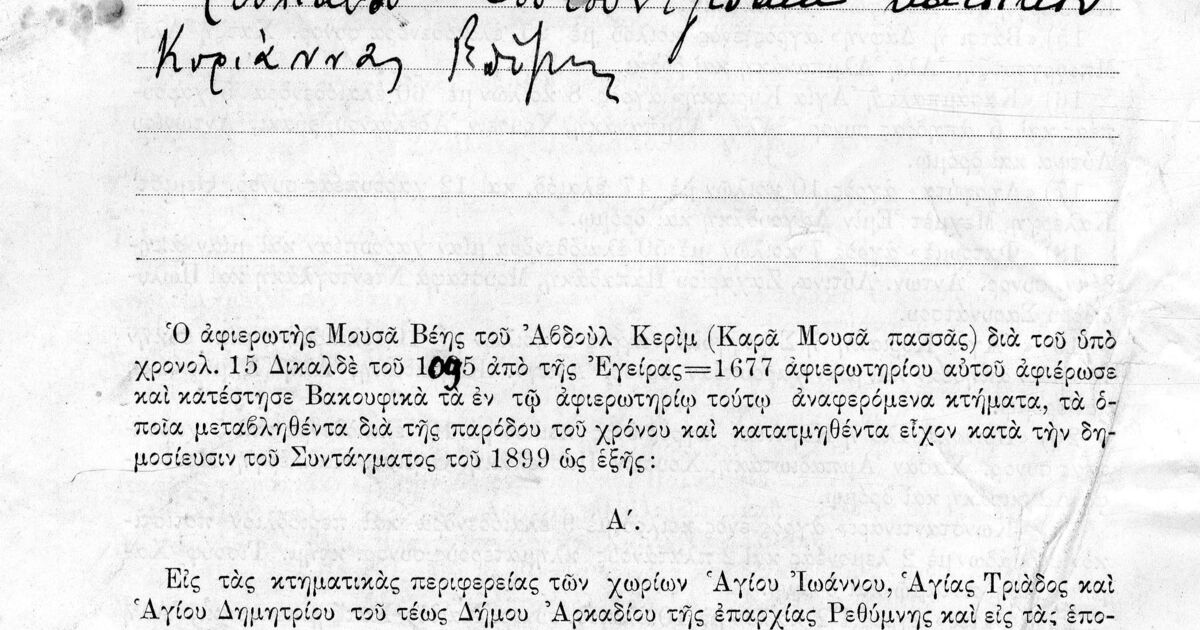 Κυριάννας Ρεθύμνης
Ὁ ἀφιερωτὴς Μουσᾶ Βέης τοῦ Ἀβδοὺλ Κερὶμ (Καρᾶ Μουσᾶ πασσᾶς) διὰ τοῦ ὑπὸ
χρονολ. 15 Δικαλδὲ τοῦ 1095 ἀπὸ τῆς Ἐγείρας=1677 ἀφιερωτηρίου αὐτοῦ ἀφιέρωσε
καὶ κατέστησε Βακουφικὰ τὰ ἐν τῷ ἀφιερωτηρίῳ τούτῳ ἀναφερόμενα κτήματα, τὰ ὁ-
ποῖα μεταβληθέντα διὰ τῆς παρόδου τοῦ χρόνου καὶ κατατμηθέντα εἶχον κατὰ τὴν δη-
μοσίευσιν τοῦ Συντάγματος τοῦ 1899 ὡς ἑξῆς:
Α΄.
Εἰς τὰς κτηματικὰς περιφερείας τῶν χωρίων Ἁγίου Ἰωάννου, Ἁγίας Τριάδος καὶ
Ἁγίου Δημητρίου τοῦ τέως Δήμου Ἀρκαδίου τῆς ἐπαρχίας Ρεθύμνης καὶ εἰς τὰς ἑπο-